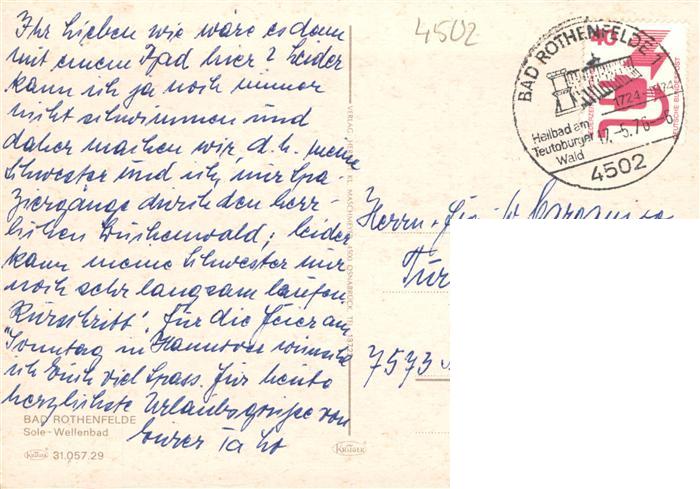 Ihr Lieben wie wäre es denn
mit einem Bad hier? Leider
kann ich ja noch immer
nicht schwimmen und
daher machen wir, d.h. meine
Schwester und ich, nur Spa-
ziergänge durch den herr-
lichen Buchenwald; leider
kann meine Schwester nur
noch sehr langsam laufen,
"Kurschritt". Für die Feier am
Sonntag in Hannover wünsche
ich Euch viel Spass. Für heute
herzlichste Urlaubsgrüsse von
Eurer
BAD ROTHENFELDE
Sole-Wellenbad
Krüger 31.057.29
Krüger
VERLAG
4500 OSNABRÜCK
4502
BAD ROTHENFELDE 1
1724-1974
Heilbad am
Teutoburger
Wald
17.-5.76-6
4502
40
DEUTSCHE BUNDESPOST
Herrn
7573